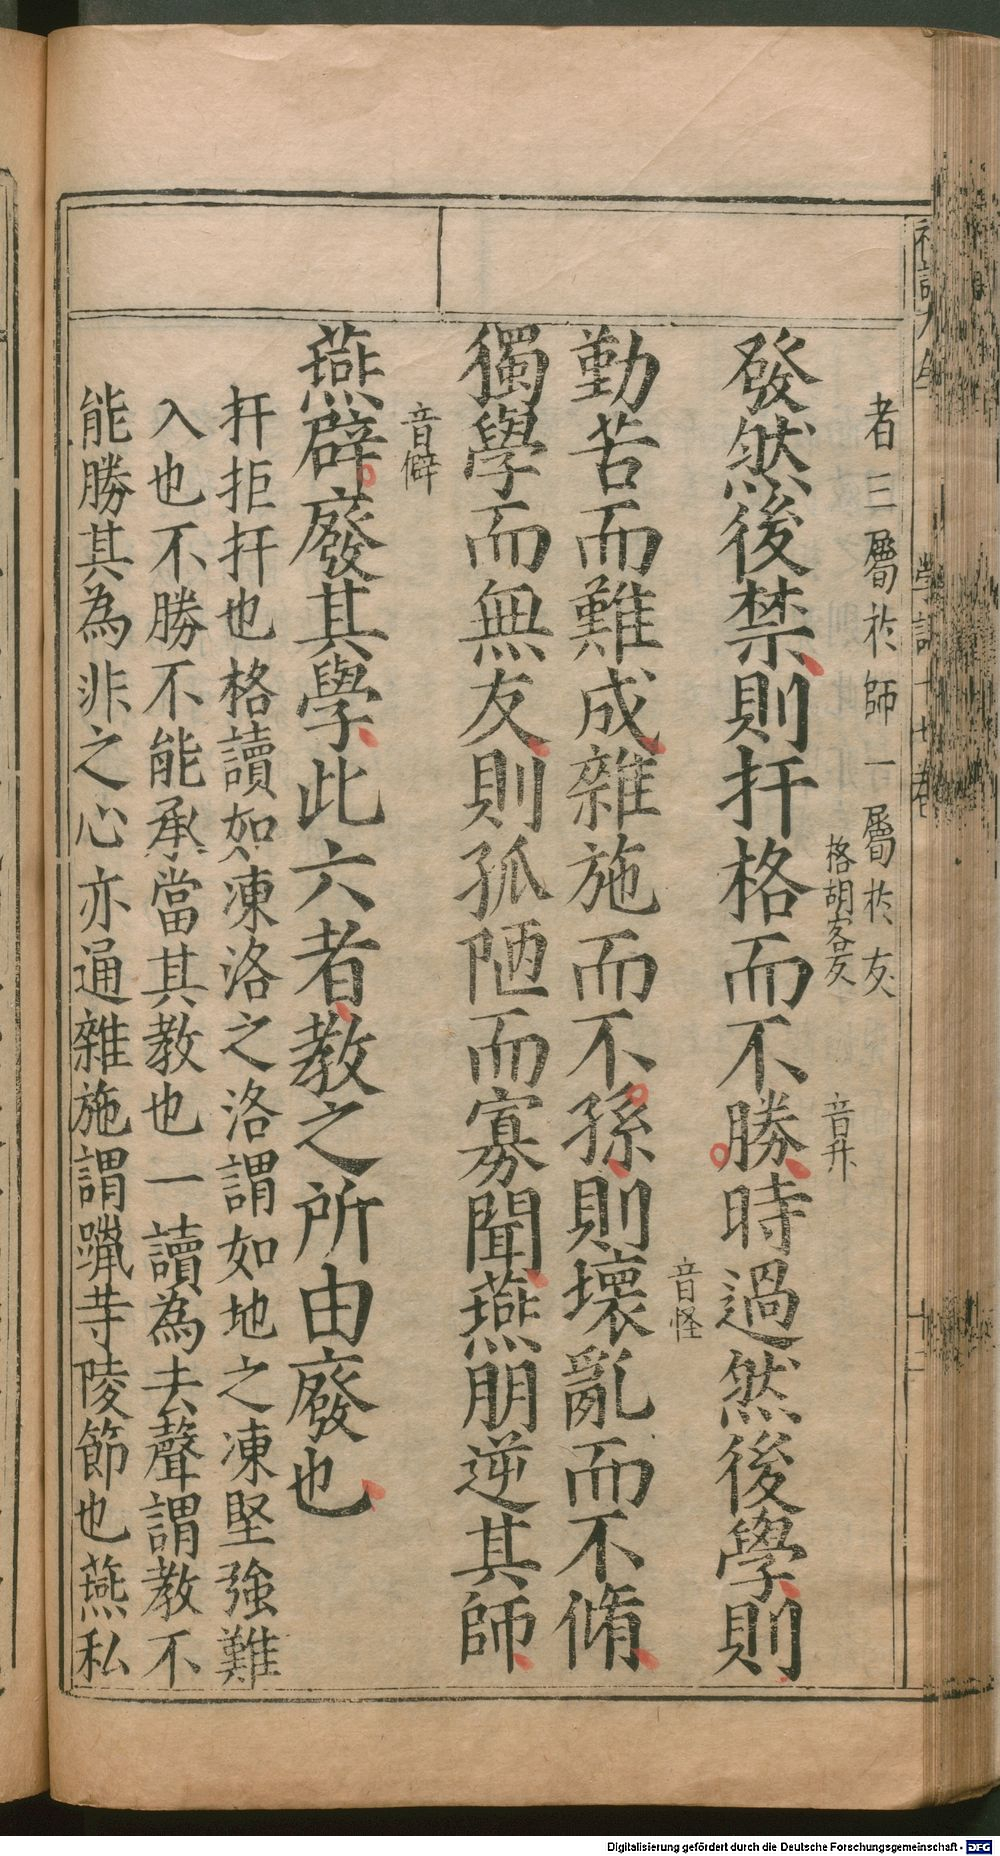 者三屬於師一屬於友
格胡客友
音升
發然後禁則扞格而不勝時過然後學則
音怪
勤苦而難成雜施而不孫則壞亂而不脩
獨學而無友則孤陋而寡聞燕朋逆其師
音僻
燕辟廢其學此六者教之所由廢也
扞拒扞也格讀如凍洛之洛謂如地之凍堅強難
入也不勝不能承當其教也一讀為去聲謂教不
能勝其為非之心亦通雜施謂躐等陵節也燕私
Digitalisierung gefördert durch die Deutsche Forschungsgemeinschaft - DFG